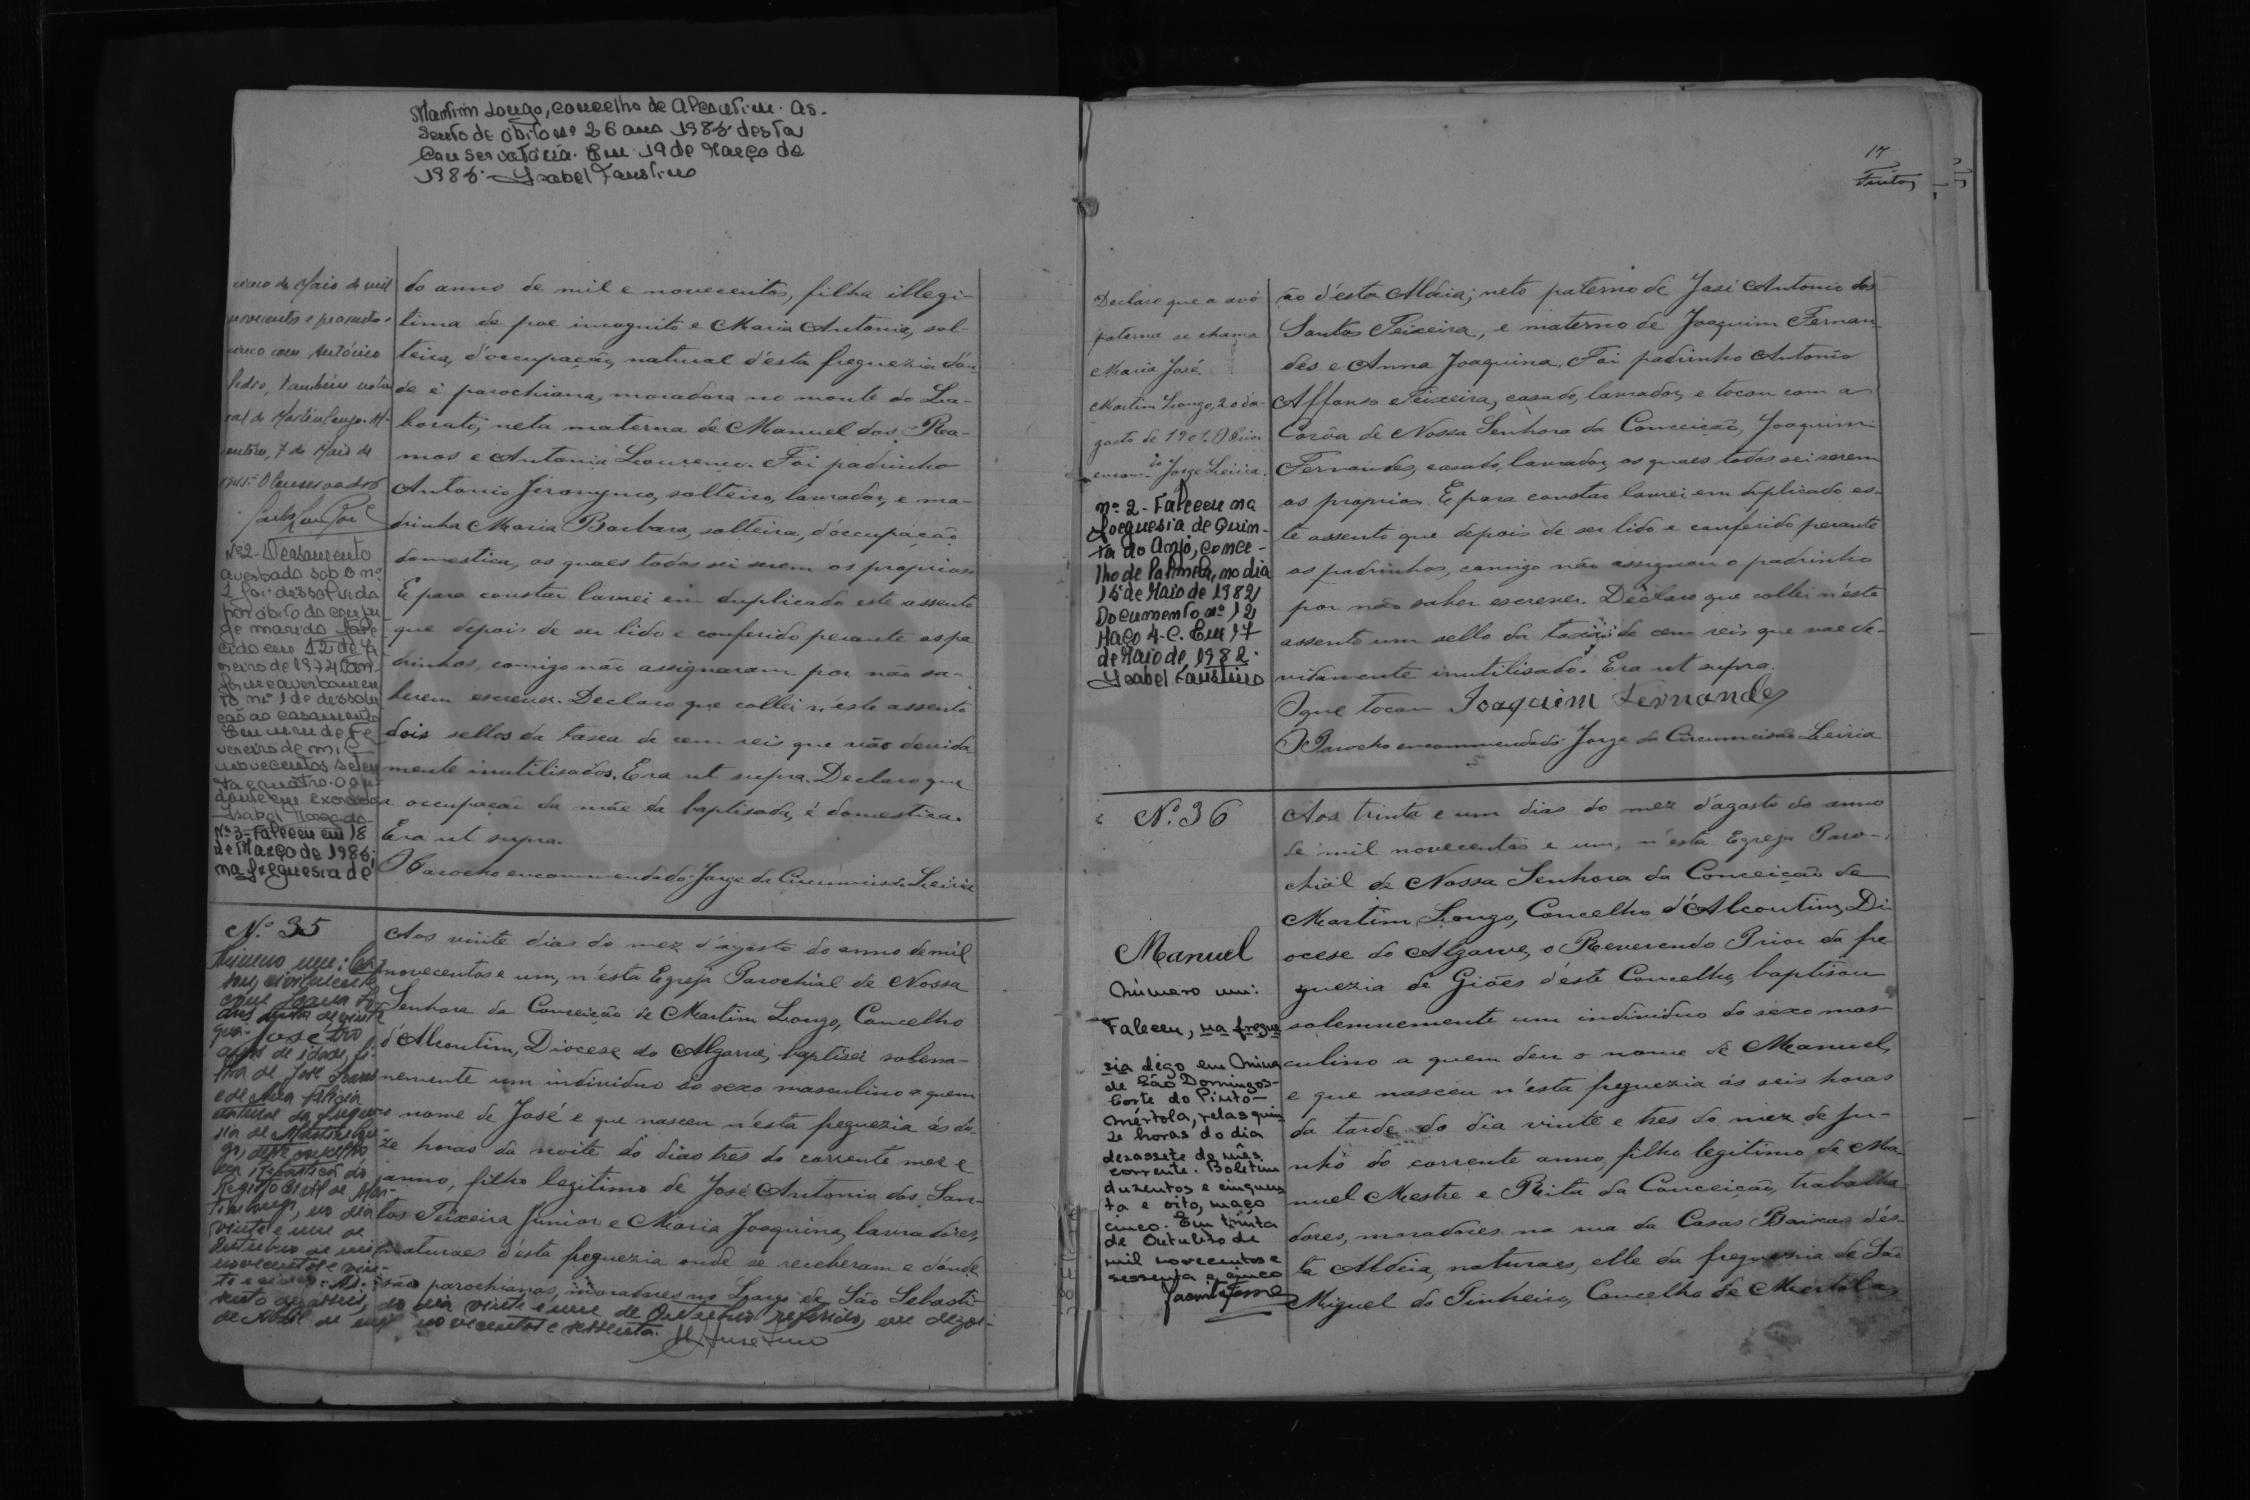 Martim Longo, concelho de Alcoutim. As-
sento de óbito nº 26 ano 1986 desta
Conservatória. Em 19 de Março de
1986. Isabel Faustino
cinco de Maio de mil
novecentos e
cinco com António
Pedro, também natu
ral de Martimlongo. Al-
coutim, 7 de Maio de
O Conservador
Nº 2 - O casamento
averbado sob o nº
1 foi dissolvido
por óbito do conju
ge marido
cido em 12 de Ja
neiro de 1974
forme averbamen
to nº 1 de dissolu
ção ao casamento
Em um de Fe
vereiro de mil
novecentos seten
ta e quatro. O aju
dante em exercicio
Isabel
Nº 3 - Faleceu em 18
de Março de 1986;
na freguesia de
do anno de mil e novecentos, filha illegi-
tima de pae incognito e Maria Antonia, sol-
teira, d'occupação, natural d'esta freguezia don-
de é parochiana, moradora no monte do La-
borato; neta materna de Manuel dos Ra-
mos e Antonia Lourenço. Foi padrinho
Antonio Jeronymo, solteiro, lavrador, e ma-
drinha Maria Barbara, solteira, d'occupação
domestica, os quaes todos sei serem os proprios
E para constar lavrei em duplicado este assento
que depois de ser lido e conferido perante os pa
drinhos, comigo não assignaram por não sa-
berem escrever. Declaro que collei n'este assento
dois sellos da taxa de cem reis que vão devida
mente inutilisados. Era ut supra. Declaro que
a occupação da mãe da baptisada, é domestica.
Era ut supra.
O Parocho encommendado Jorge da Circumcisão Leiria
Nº 35
Número um: Ca
sou civilmente
com Joana
de vinte
José tres
anos de idade, fi-
lha de José
e de Ana
natural da fregue
sia de Martimlon-
go, deste concelho
Registo Civil de Mar-
timlongo, no dia
vinte e um de
Outubro de mil
novecentos e vin-
te e cinco. As-
Aos vinte dias do mez d'agosto do anno de mil
novecentos e um, n'esta Egreja Parochial de Nossa
Senhora da Conceição de Martim Longo, Concelho
d'Alcoutim, Diocese do Algarve, baptisei solem-
nemente um individuo do sexo masculino a quem
nome de José e que nasceu n'esta freguezia ás do-
ze horas da noite do dia tres do corrente mez e
anno, filho legitimo de José Antonio dos San-
tos Teixeira Junior e Maria Joaquina, lavradores,
naturaes d'esta freguezia onde se receberam e d'onde
são parochianos, moradores no Largo de São Sebasti-
do dia vinte e um de Outubro referido, em dezoi-
de mil novecentos e sessenta.
17
Declaro que a avó
paterna se chama
Maria José
Martim Longo, 20 d'a-
gosto de 1901. O Prior
encom.do Jorge Leiria.
nº 2 - Faleceu na
freguesia de Quin-
ta do Anjo, conce-
lho de Palmela, no dia
15 de Maio de 1982
Documento nº 12
Maço 4-C. Em 17
de Maio de 1982.
Isabel Faustino
ão d'esta Aldeia; neto paterno de José Antonio dos
Santos Teixeira, e materno de Joaquim Fernan
des e Anna Joaquina. Foi padrinho Antonio
Affonso Teixeira, casado, lavrador, e tocou com a
Corôa de Nossa Senhora da Conceição, Joaquim
Fernandes, casado, lavrador, os quaes todos sei serem
os proprios. E para constar lavrei em duplicado es-
te assento que depois de ser lido e conferido perante
os padrinhos, comigo não assignou o padrinho
por não saber escrever. Declaro que collei n'este
assento um sello da taxa de cem reis que vae de-
vidamente inutilisado. Era ut supra.
O que tocou Joaquim Fernandes
O Parocho encommendado Jorge da Circumcisão Leiria
Nº 36
Manuel
Número um:
Faleceu, na fregue
sia digo em Mina
de São Domingos-
Corte do Pinto-
Mértola, pelas quin
ze horas do dia
dezassete do mês
corrente. Boletim
duzentos e cinquen
ta e oito, maço
cinco. Em trinta
de Outubro de
mil novecentos e
sessenta e cinco
Aos trinta e um dias do mez d'agosto do anno
de mil novecentos e um, n'esta Egreja Paro-
chial de Nossa Senhora da Conceição de
Martim Longo, Concelho d'Alcoutim, Di
ocese do Algarve, o Reverendo Prior da fre
guezia de Giões d'este Concelho, baptisou
solemnemente um individuo do sexo mas-
culino a quem deu o nome de Manuel,
e que nasceu n'esta freguezia ás seis horas
da tarde do dia vinte e tres do mez de Ju-
nho do corrente anno, filho legitimo de Ma-
nuel Mestre e Rita da Conceição, trabalha-
dores, moradores na rua da Casas Baixas d'es-
ta Aldeia, naturaes, elle da freguezia de São
Miguel do Pinheiro, Concelho de Mertola,